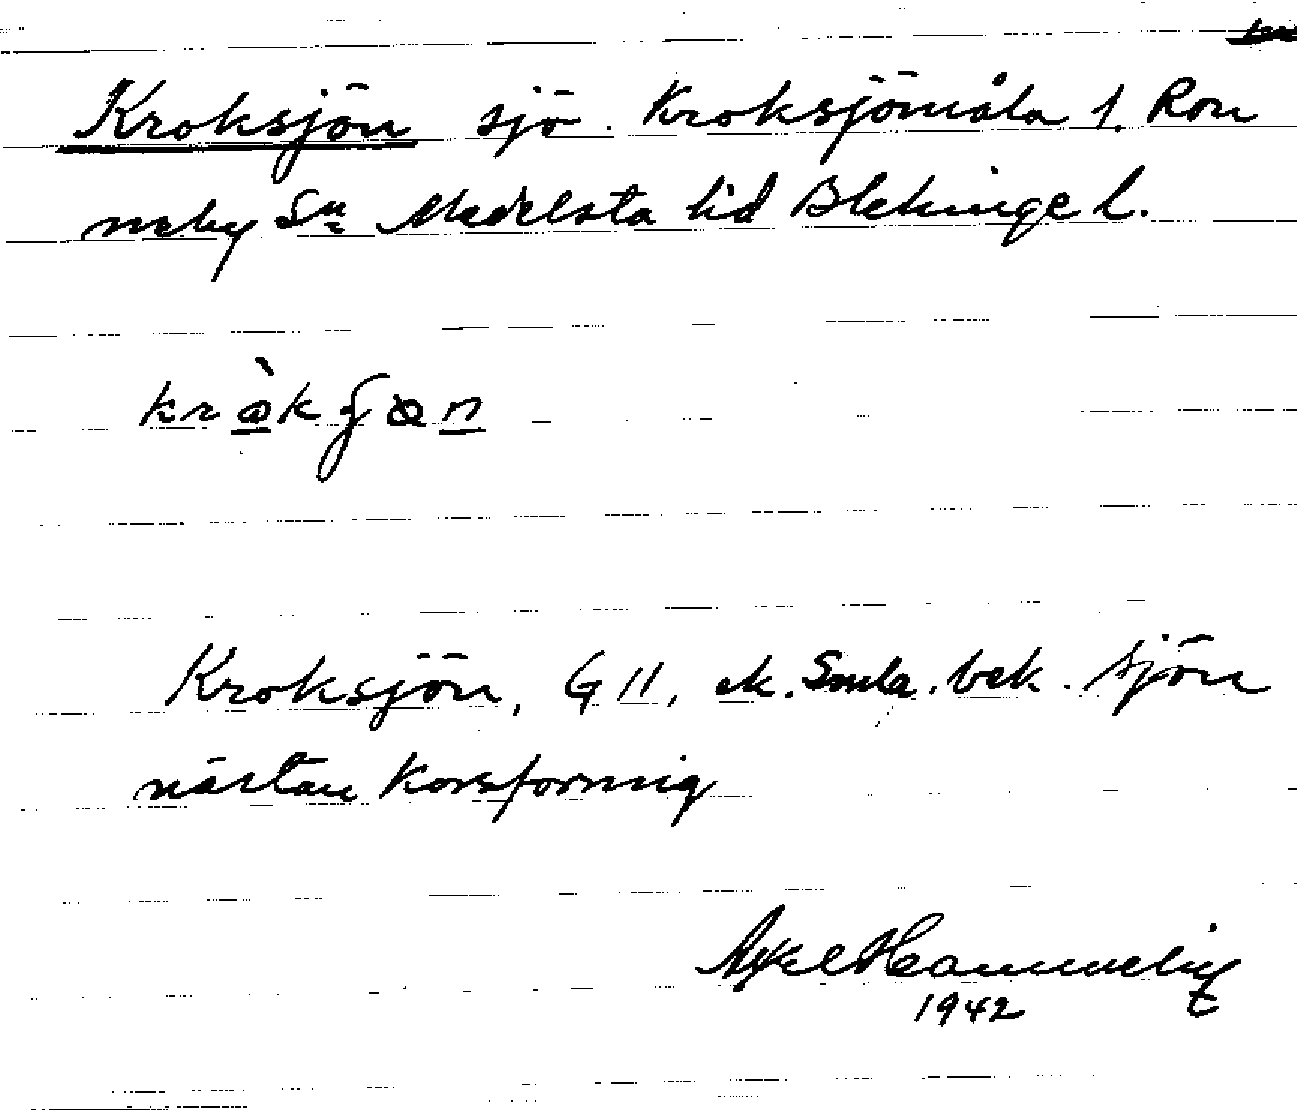 Kroksjön sjö. Kroksjömåla 1. Ron
neby Sn Medelsta hd Blekinge l.
Kroksjön, G 11, ek. bek. sjön
nästan korsformig
Axel
1942